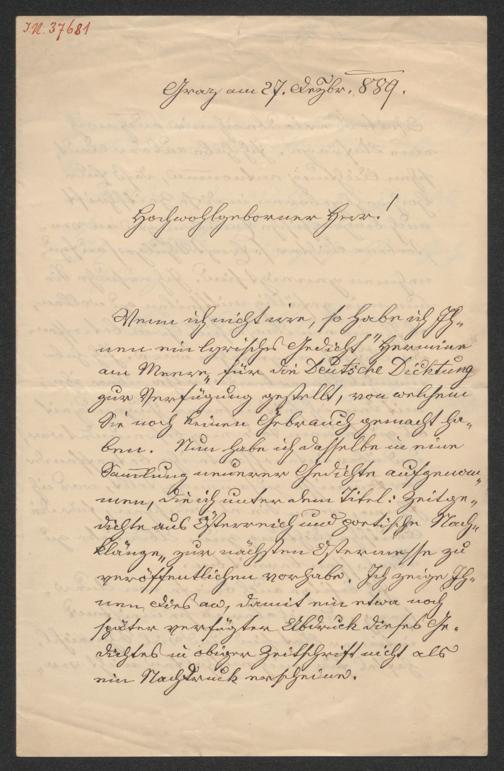 I.N. 37681
Graz am 27. Dezbr. 889.
Hochwohlgeborner Herr!
Wenn ich nicht irre, so habe ich Ih-
nen ein lyrisches Gedicht "Hermine
am Meere„ für die Deutsche Dichtung
zur Verfügung gestellt, von welchem
Sie noch keinen Gebrauch gemacht ha-
ben. Nun habe ich dasselbe in eine
Sammlung neuerer Gedichte aufgenom-
men, die ich unter dem Titel: Zeitge-
dichte aus Österreich und poetische Nach-
klänge„ zur nächsten Ostermesse zu
veröffentlichen vorhabe. Ich zeige Ih-
nen dies an, damit ein etwa noch
später verfügter Abdruck dieses Ge-
dichtes in obiger Zeitschrift nicht als
ein Nachdruck erscheine.